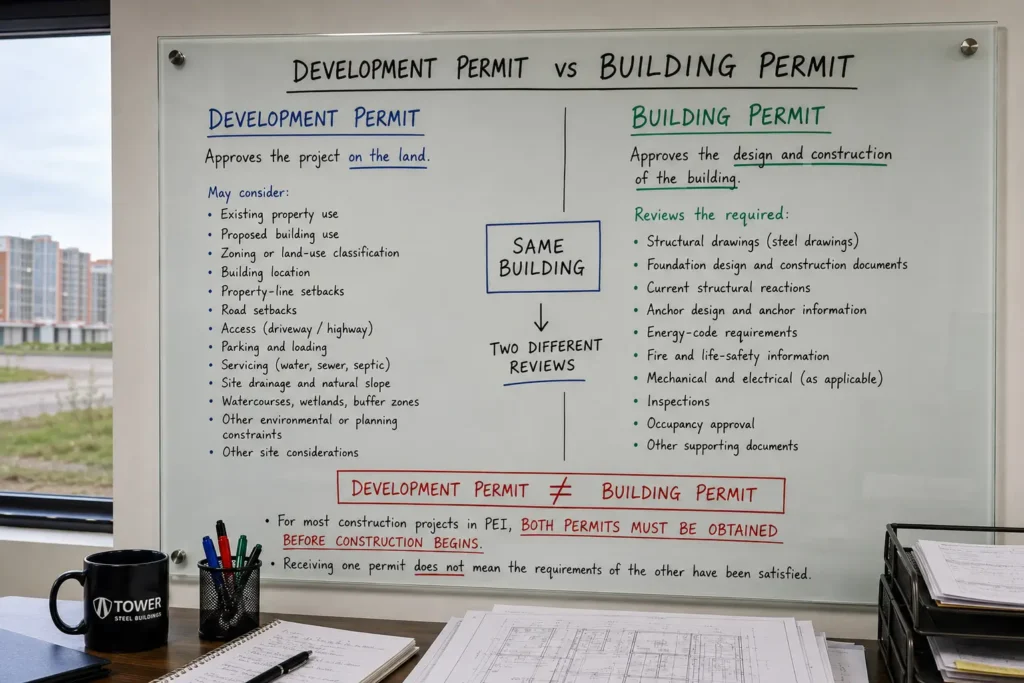 DEVELOPMENT PERMIT vs BUILDING PERMIT
DEVELOPMENT PERMIT
Approves the project on the land.
May consider:
• Existing property use
• Proposed building use
• Zoning or land-use classification
• Building location
• Property-line setbacks
• Road setbacks
• Access (driveway / highway)
• Parking and loading
• Servicing (water, sewer, septic)
• Site drainage and natural slope
• Watercourses, wetlands, buffer zones
• Other environmental or planning
constraints
• Other site considerations
SAME
BUILDING
TWO DIFFERENT
REVIEWS
BUILDING PERMIT
Approves the design and construction
of the building.
Reviews the required:
• Structural drawings (steel drawings)
• Foundation design and construction documents
• Current structural reactions
• Anchor design and anchor information
• Energy-code requirements
• Fire and life-safety information
• Mechanical and electrical (as applicable)
• Inspections
• Occupancy approval
• Other supporting documents
DEVELOPMENT PERMIT ≠ BUILDING PERMIT
• For most construction projects in PEI, BOTH PERMITS MUST BE OBTAINED
BEFORE CONSTRUCTION BEGINS.
• Receiving one permit does not mean the requirements of the other have been satisfied.
TOWER
STEEL BUILDINGS